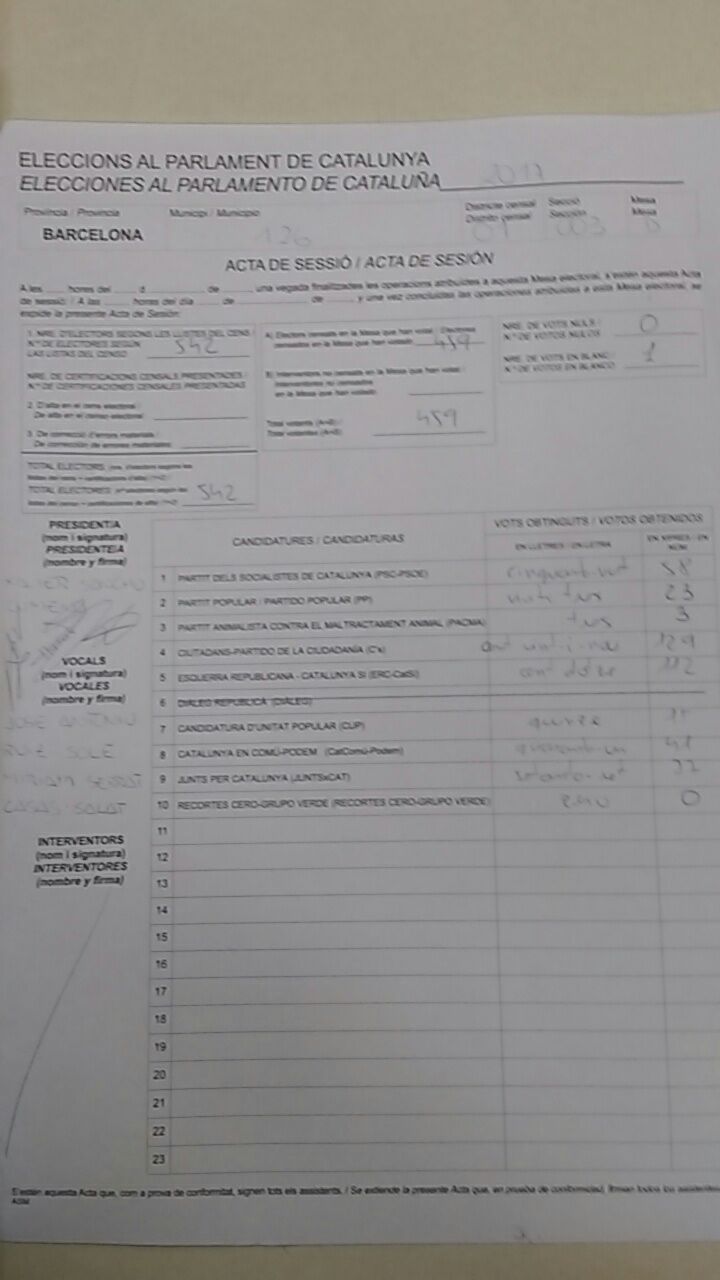 ELECCIONS AL PARLAMENT DE CATALUNYA
ELECCIONES AL PARLAMENTO DE CATALUÑA 2017
Província / Provincia Municipi / Municipio Districte censal Secció Mesa
Distrito censal Sección Mesa
BARCELONA 126 01 003 B
ACTA DE SESSIÓ / ACTA DE SESIÓN
A les hores del d de una vegada finalitzades les operacions atribuïdes a aquesta Mesa electoral, s'estén aquesta Acta
de sessió: / A las horas del día de de y una vez concluidas las operaciones atribuidas a esta Mesa electoral, se
expide la presente Acta de Sesión:
1. NRE. D'ELECTORS SEGONS LES LLISTES DEL CENS /
N.º DE ELECTORES SEGÚN
LAS LISTAS DEL CENSO 542
NRE. DE CERTIFICACIONS CENSALS PRESENTADES /
N.º DE CERTIFICACIONES CENSALES PRESENTADAS
2. D'alta en el cens electoral /
De alta en el censo electoral
3. De correcció d'errors materials /
De corrección de errores materiales
TOTAL ELECTORS
TOTAL ELECTORES 542
A) Electors censats en la Mesa que han votat / Electores
censados en la Mesa que han votado 459
B) Interventors no censats en la Mesa que han votat /
Interventores no censados
en la Mesa que han votado
Total votants (A+B) /
Total votantes (A+B) 459
NRE. DE VOTS NULS /
N.º DE VOTOS NULOS 0
NRE. DE VOTS EN BLANC /
N.º DE VOTOS EN BLANCO 1
PRESIDENT/A
(nom i signatura)
PRESIDENTE/A
(nombre y firma)
VOCALS
(nom i signatura)
VOCALES
(nombre y firma)
JOSE ANTONIO
SOLE
INTERVENTORS
(nom i signatura)
INTERVENTORES
(nombre y firma)
CANDIDATURES / CANDIDATURAS VOTS OBTINGUTS / VOTOS OBTENIDOS
EN LLETRES / EN LETRA EN XIFRES / EN NÚM.
1 PARTIT DELS SOCIALISTES DE CATALUNYA (PSC-PSOE) 58
2 PARTIT POPULAR / PARTIDO POPULAR (PP) 23
3 PARTIT ANIMALISTA CONTRA EL MALTRACTAMENT ANIMAL (PACMA) tres 3
4 CIUTADANS-PARTIDO DE LA CIUDADANÍA (C's) 129
5 ESQUERRA REPUBLICANA - CATALUNYA SÍ (ERC-CatSí) cent dotze 112
6 DIÀLEG REPUBLICÀ (DIÀLEG)
7 CANDIDATURA D'UNITAT POPULAR (CUP) quinze 15
8 CATALUNYA EN COMÚ-PODEM (CatComú-Podem) 41
9 JUNTS PER CATALUNYA (JUNTSxCAT) 77
10 RECORTES CERO-GRUPO VERDE (RECORTES CERO-GRUPO VERDE) zero 0
11
12
13
14
15
16
17
18
19
20
21
22
23
S'estén aquesta Acta que, com a prova de conformitat, signen tots els assistents. / Se extiende la presente Acta que, en prueba de conformidad, firman todos los asistentes